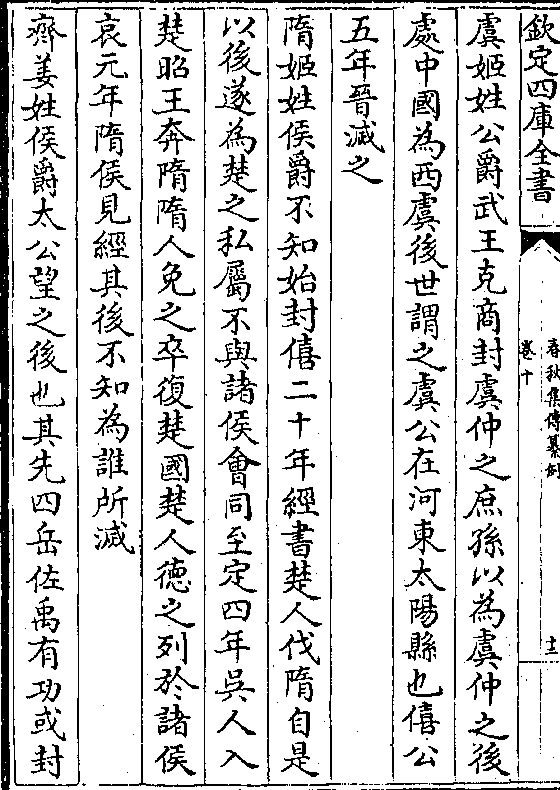 欽定四庫全書
春秋集傳纂例
卷十
十三
虞姬姓公爵武王克商封虞仲之庶孫以為虞仲之後
處中國為西虞後世謂之虞公在河東太陽縣也僖公
五年晉滅之
隋姬姓侯爵不知始封僖二十年經書楚人伐隋自是
以後遂為楚之私屬不與諸侯會同至定四年吳人入
楚昭王奔隋隋人免之卒復楚國楚人德之列於諸侯
哀元年隋侯見經其後不知為誰所滅
齊姜姓侯爵太公望之後也其先四岳佐禹有功或封